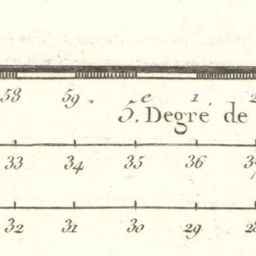 58 59. e 1 2
5. Degré de
33 34 35 36
32 31 30 29 28